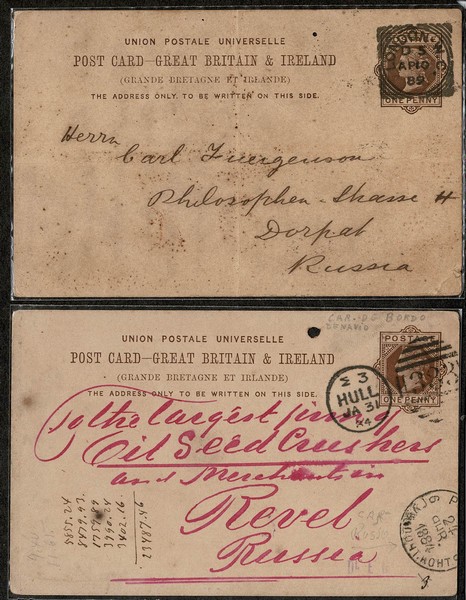 UNION POSTALE UNIVERSELLE
POST CARD—GREAT BRITAIN & IRELAND
(GRANDE BRETAGNE ET IRLANDE)
THE ADDRESS ONLY TO BE WRITTEN ON THIS SIDE.
LONDON W.C
D 5
AP 10
89
ONE PENNY
Herrn
Carl Juergenson
Philosophen-Strasse
Dorpat
Russia
CAR. DO BORDO
UNION POSTALE UNIVERSELLE
POST CARD—GREAT BRITAIN & IRELAND
(GRANDE BRETAGNE ET IRLANDE)
THE ADDRESS ONLY TO BE WRITTEN ON THIS SIDE.
POSTAGE
ONE PENNY
383
Σ 3
HULL
JA 31
84
To the largest firm
Oil Seed Crushers
and Merchants in
Revel
Russia
1884